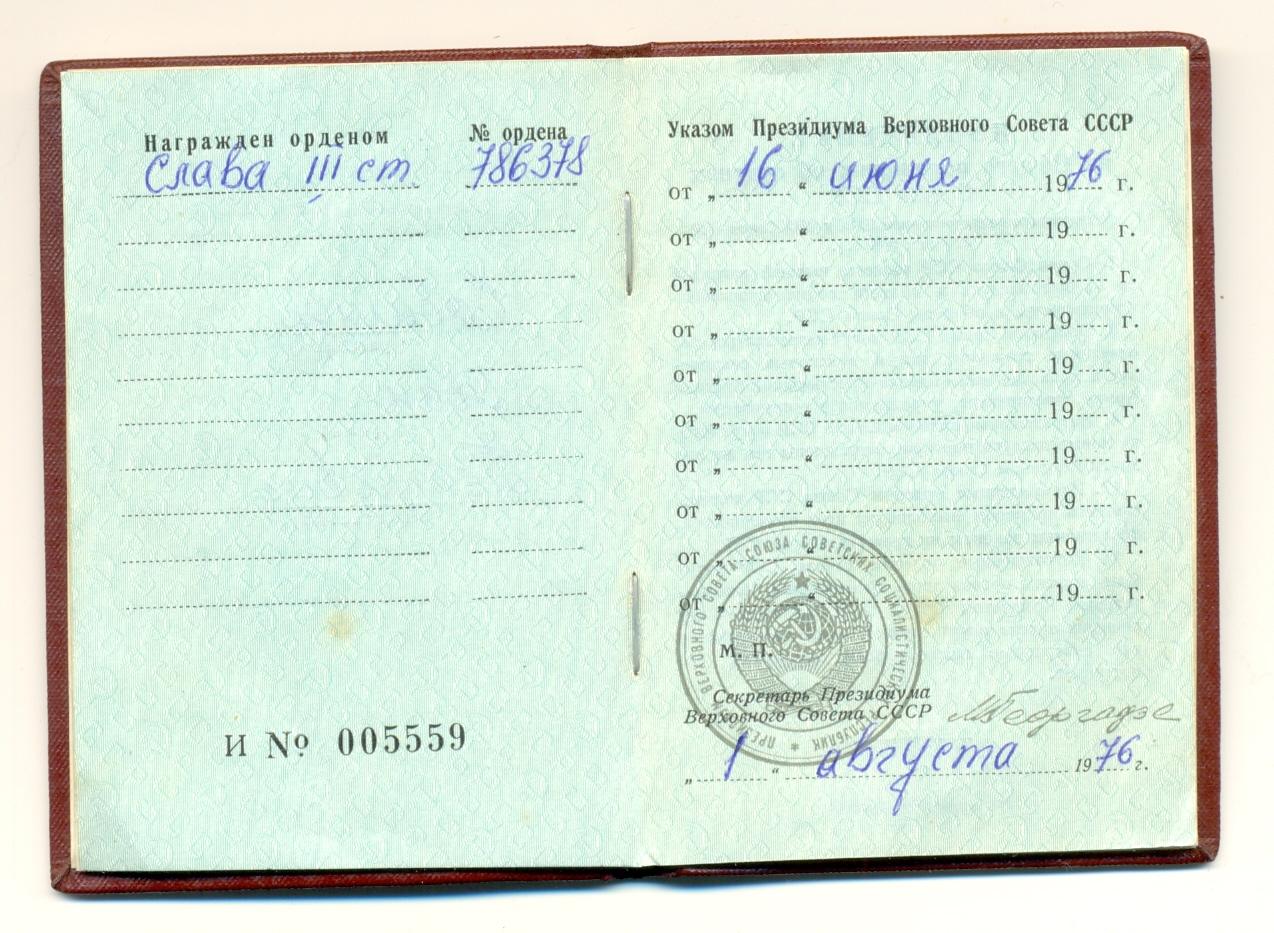 Награжден орденом
Слава III ст
№ ордена
786378
И № 005559
Указом Президиума Верховного Совета СССР
от „ 16 “ июня 1976 г.
от „ “ 19 г.
от „ “ 19 г.
от „ “ 19 г.
от „ “ 19 г.
от „ “ 19 г.
от „ “ 19 г.
от „ “ 19 г.
от „ “ 19 г.
от „ “ 19 г.
ВЕРХОВНОГО СОВЕТА СОЮЗА СОВЕТСКИХ СОЦИАЛИСТИЧЕСКИХ РЕСПУБЛИК
М. П.
Секретарь Президиума
Верховного Совета СССР МГеоргадзе
„ 1 “ августа 1976 г.